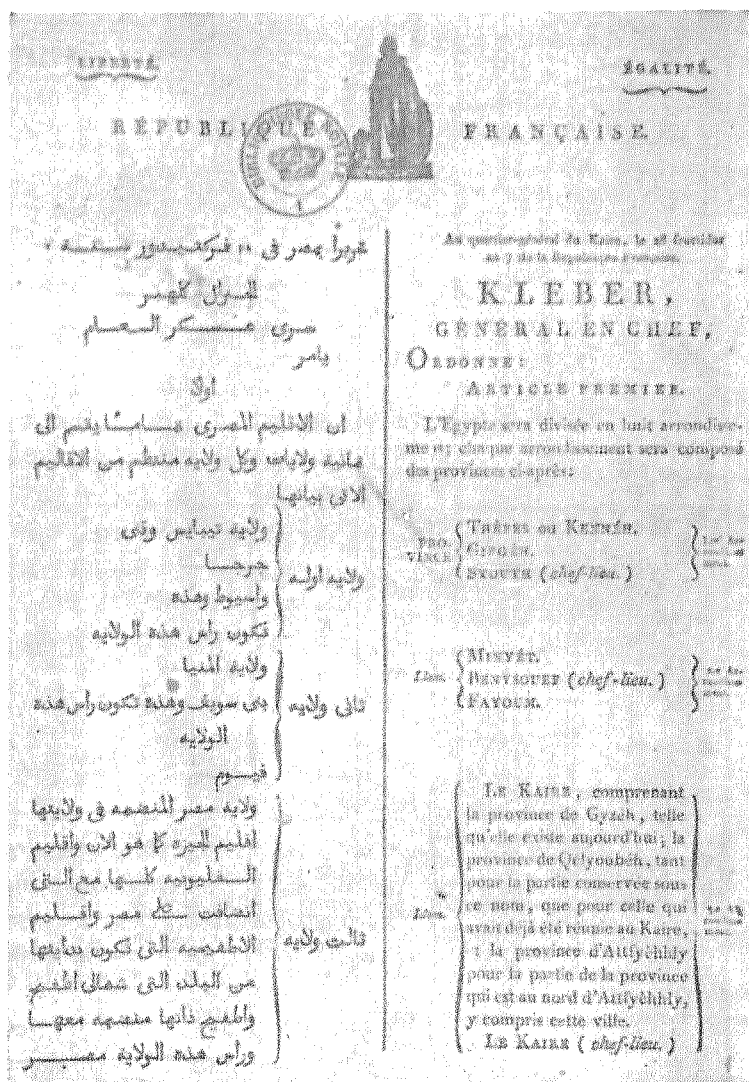 LIBERTÉ.
ÉGALITÉ.
RÉPUBLIQUE FRANÇAISE.
تحريراً بمصر في فركتيدور سنة ٧
الجنرال كلهبر
سرى عسكر العام
يامر
اولا
ان الاقليم المصرى يقسم الى
ثمانية ولايات وكل ولايه منتظم من الاقاليم
الاتى بيانها
ولايه اوله
ولايه تيبايس وقى
جرجا
واسيوط وهذه
تكون راس هذه الولايه
ثانى ولايه
ولايه المنيا
بنى سويف وهذه تكون راس هذه
الولايه
فيوم
ثالت ولايه
ولايه مصر المنضمه فى ولايتها
اقليم الجيزه كما هو الان واقليم
القليوبيه كلها مع التى
انضافت مصر واقليم
الاطفيحيه التى تكون بدايتها
من البلاد التى شمالى اطفيح
واطفيح فانها منضمه معها
وراس هذه الولاية مصر
Au quartier-général du Kaire, le 28 fructidor
an 7 de la République française.
KLEBER,
GÉNÉRAL EN CHEF,
ORDONNE:
ARTICLE PREMIER.
L'Égypte sera divisée en huit arrondisse-
mens; chaque arrondissement sera composé
des provinces ci-après:
PRO-
VINCE
THÈBES ou KENNÉH.
GIRGÉH.
SYOUTH (chef-lieu.)
Idem.
MINYÉT.
BENYSOUEF (chef-lieu.)
FAYOUM.
Idem.
LE KAIRE, comprenant
la province de Gyzeh, telle
qu'elle existe aujourd'hui; la
province de Qelyoubéh, tant
pour la partie conservée sous
ce nom, que pour celle qui
avait déjà été réunie au Kaire,
la province d'Attfyèhhly
pour la partie de la province
qui est au nord d'Attfyèhhly,
y compris cette ville.
LE KAIRE (chef-lieu.)